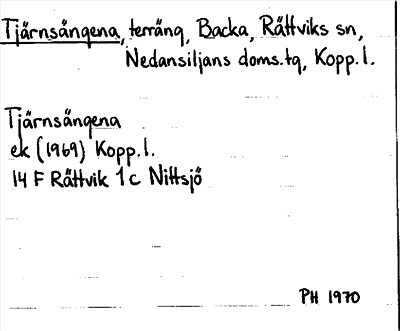 Tjärnsängena, terräng, Backa, Rättviks sn,
Nedansiljans doms.tg, Kopp.l.
Tjärnsängena
ek (1969) Kopp.l.
14 F Rättvik 1 c Nittsjö
PH 1970